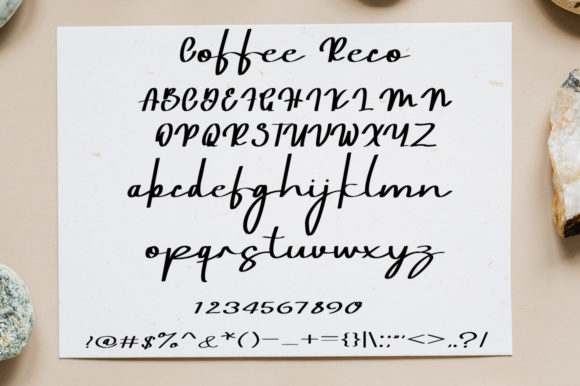 Coffee Reco
ABCDEFGHIKLMN
OPQRSTUVWXYZ
abcdefghijklmn
opqrstuvwxyz
1234567890
!@#$%^&*()-_+={}|\:;"'<>,.?/